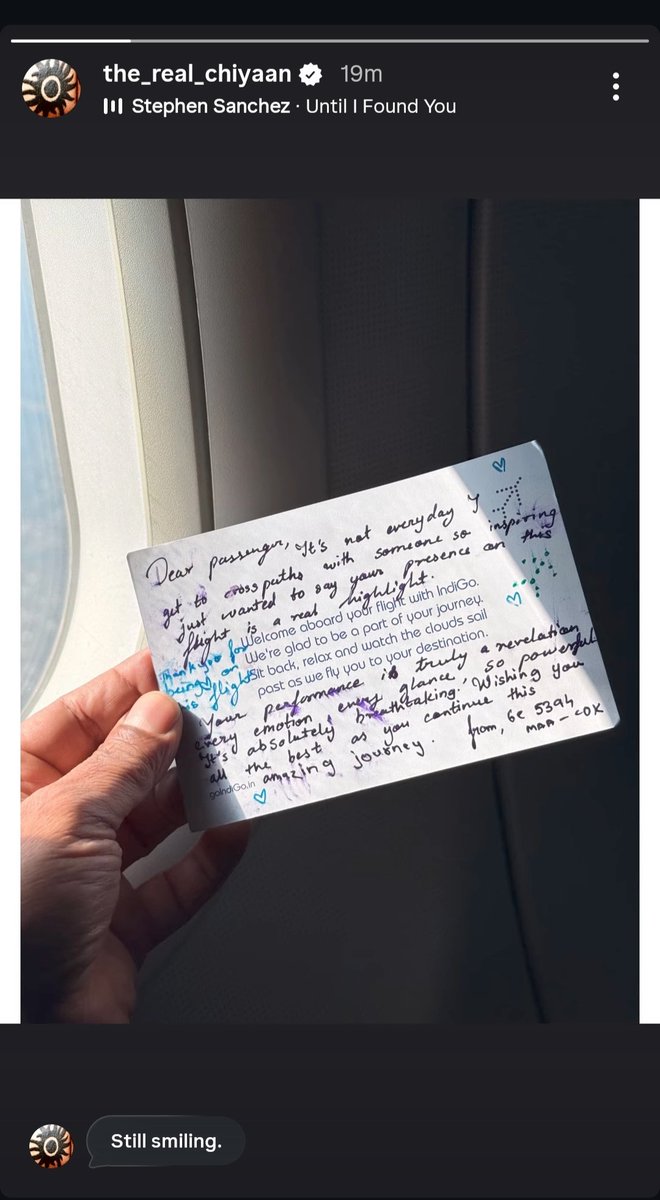 the_real_chiyaan 19m
Stephen Sanchez · Until I Found You
Dear passenger, It's not everyday I
get to cross paths with someone so inspiring
just wanted to say your presence on this
flight is a real highlight.
Welcome aboard your flight with IndiGo.
We're glad to be a part of your journey.
Sit back, relax and watch the clouds sail
past as we fly you to your destination.
Thank you for
being on
flight
Your performance is truly a revelation
every emotion, every glance, so powerful
It's absolutely breathtaking. Wishing you
all the best as you continue this
amazing journey.
from, 6e 5394
MAA - COK
goIndiGo.in
Still smiling.